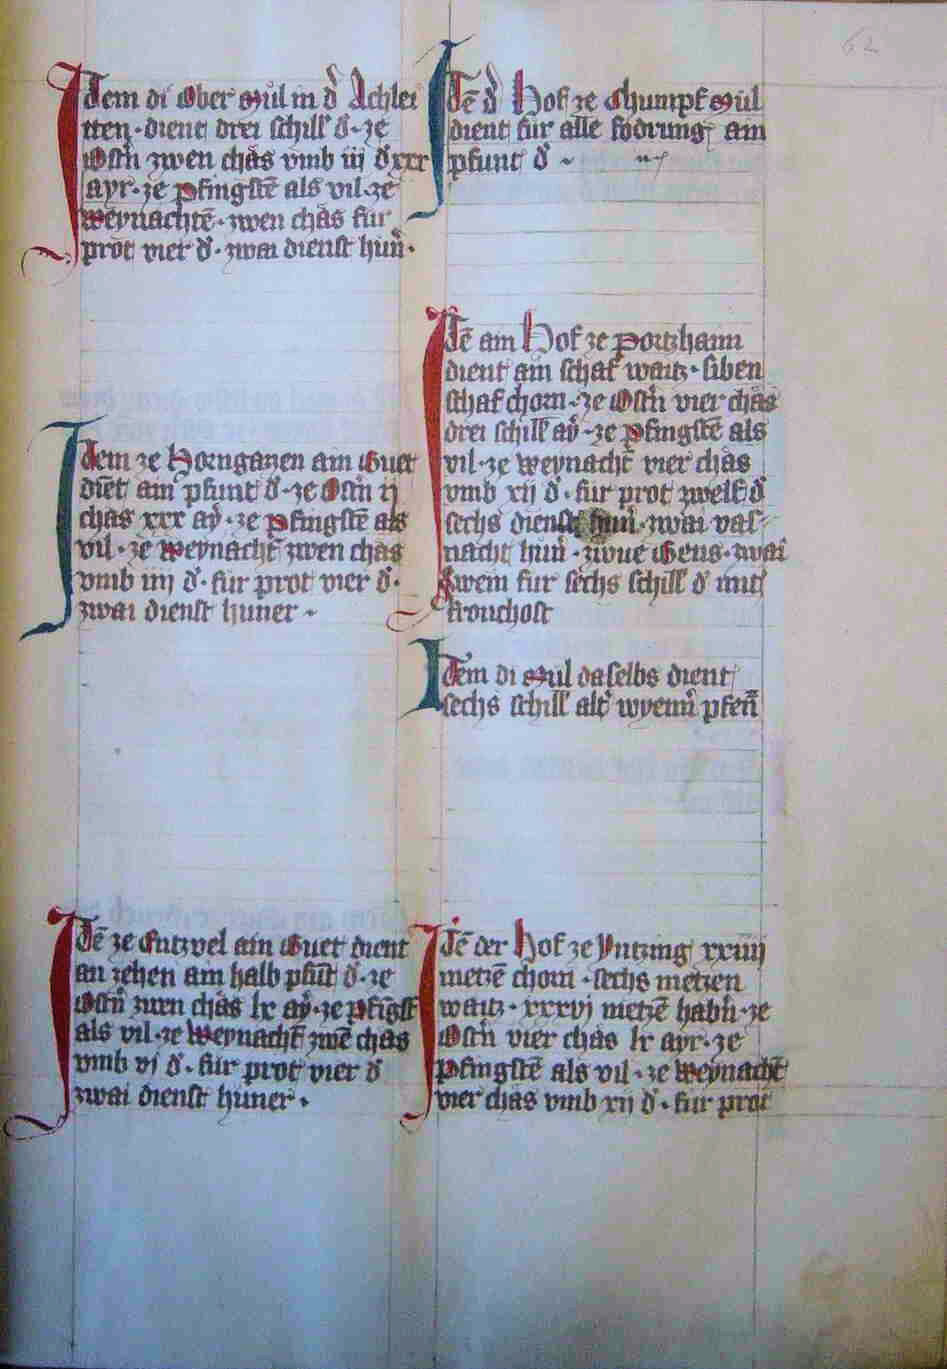 Item di Ober Mül in d͛ Achlei
tten · dient drei schill ₰ · ze
Ostn̄ zwen chäs vmb iij ₰ xxx
ayr · ze Pfingstē als vil · ze
Weynachtē · zwen chäs für
prot vier ₰ · zwai dienst hun͛ ·
Item ze Hornganzen am Guet
diēt ain pfunt ₰ · ze Ostn̄ ij
chäs xxx ay͛ · ze Pfingstē als
vil · ze Weynacht̄ zwen chäs
vmb iiij ₰ · für prot vier ₰ ·
zwai dienst huner ·
Itē ze ain Guet dient
an zehen ain halb pfūt ₰ · ze
Ostn̄ chäs lx ay͛ · ze Pfīgst̄
als vil · ze Weynacht̄ zwē chäs
vmb vj ₰ · für prot vier ₰
zwai dienst huner ·
62
Itē d͛ Hof ze Chumpfmül
dient für alle fodrung ain
pfunt ₰
Itē am Hof ze Portzhaim
dient ain schaf waitz · siben
schaf chorn · ze Ostn̄ vier chäs
drei schill ay͛ · ze Pfingstē als
vil · ze Weynacht̄ vier chäs
vmb xij ₰ · für prot zwelf ₰
sechs dienst hun͛ · zwai vas-
nacht hun͛ · zwue Gens · zwai
Swein für sechs schill ₰ mit
fronchost
Itēm di Mül daselbs dient
sechs schill alt͛ wyenn͛ pfen̄
Itē der Hof ze Yntzing xxiiij
metzē chorn · sechs metzen
waitz · xxxvj metzē habn̄ · ze
Ostn̄ vier chäs lx ayr · ze
Pfingstē als vil · ze Weynacht̄
vier chäs vmb xij ₰ · für prot